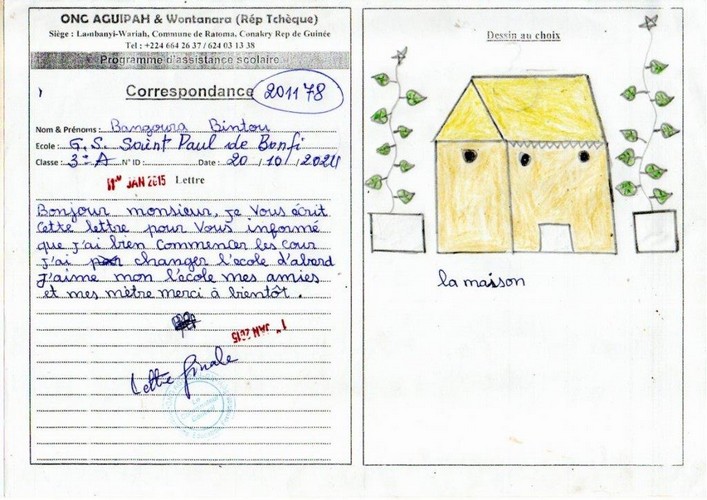 ONG AGUIPAH & Wontanara (Rép Tchèque)
Siège : Lambanyi-Wariah, Commune de Ratoma, Conakry Rep de Guinée
Tel : +224 664 26 37 / 624 03 13 38
Programme d'assistance scolaire
Correspondance 201178
Nom & Prénoms : Bangoura Bintou
Ecole : G.S. Saint Paul de Bonfi
Classe : 3e A N° ID : Date : 20 / 10 / 2024
JAN 2015 Lettre
Bonjour monsieur, je vous écrit
Cette lettre pour vous informé
que j'ai bien commencer les cour
j'ai changer l'ecole d'abord
j'aime mon l'école mes amies
et mes mètre merci à bientôt .
JAN 2015
Lettre finale
Dessin au choix
la maison